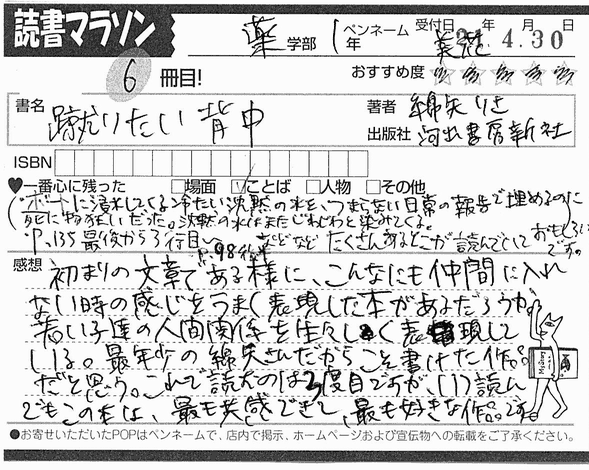 読書マラソン
薬 学部 1年 ペンネーム 美 受付日 2 年 4. 月 30 日
6 冊目! おすすめ度 ☆☆☆☆☆
書名 蹴りたい背中 著者 綿矢りさ
出版社 河出書房新社
ISBN
♥一番心に残った □場面 ☑ことば □人物 □その他
(ボートに浸水してくる冷たい沈黙の水を、つまらない日常の報告で埋めるのに
死に物狂いだった。沈黙の水はまだじわじわと染みてくる。
P.135 最後から3行目〜 P.98 後半 などなど たくさんあるとこが読んでいて おもしろいです。
感想 初まりの文章である様に、こんなにも仲間に入れ
ない時の感じをうまく表現した本があるだろうか。
若い子達の人間関係を生々しく表現して
いる。最年少の綿矢さんだからこそ書けた作品。
だと思う。これで読むのは3度目ですが、いつ読ん
でもこの本は、最も共感できて、最も好きな作品です。
●お寄せいただいたPOPはペンネームで、店内で掲示、ホームページおよび宣伝物への転載をご了承ください。